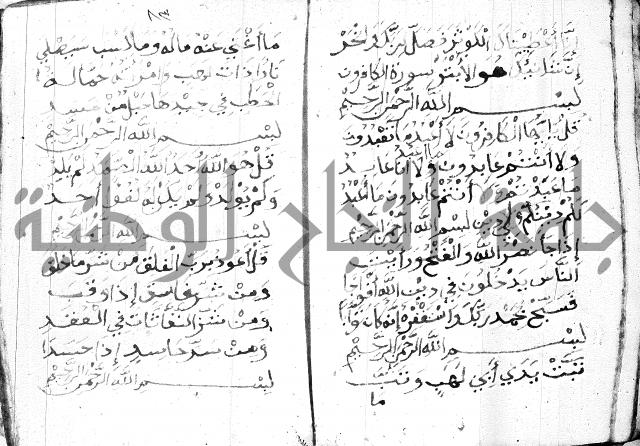 إنا أعطيناك الكوثر فصل لربك وانحر
إن شانئك هو الأبتر سورة الكافرون
بسم الله الرحمن الرحيم
قل يا أيها الكافرون لا أعبد ما تعبدون
ولا أنتم عابدون ما أعبد ولا أنا عابد
ما عبدتم ولا أنتم عابدون ما أعبد
لكم دينكم ولي دين بسم الله الرحمن الرحيم
إذا جاء نصر الله والفتح ورأيت
الناس يدخلون في دين الله أفواجا
فسبح بحمد ربك واستغفره إنه كان توابا
بسم الله الرحمن الرحيم
تبت يدي أبي لهب وتب
ما
ما أغنى عنه ماله وما كسب سيصلى
نارا ذات لهب وامرأته حمالة
الحطب في جيدها حبل من مسد
بسم الله الرحمن الرحيم
قل هو الله أحد الله الصمد لم يلد
ولم يولد ولم يكن له كفؤا أحد
بسم الله الرحمن الرحيم
قل أعوذ برب الفلق من شر ما خلق
ومن شر غاسق إذا وقب
ومن شر النفاثات في العقد
ومن شر حاسد إذا حسد
بسم الله الرحمن الرحيم
جامعة النجاح الوطنية